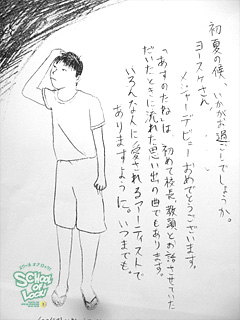 初夏の候、いかがお過ごしでしょうか。
ヨースケさん
メジャーデビューおめでとうございます。
「あすのたね」は、初めて校長、教頭とお話させていた
だいたときに流れた思い出の曲でもあります。
いろんな人に愛されるアーティストで
ありますように。いつまでも。
SCHOOL
OF
LOCK!